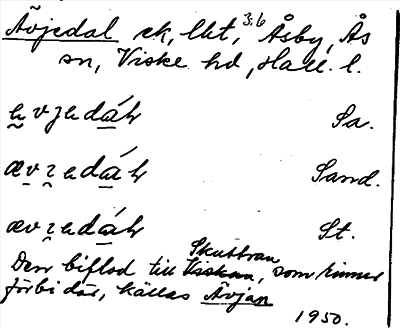 Ävjedal ek, lht, 3:6 Åsby, Ås
sn, Viske hd, Hall. l.
ævjedáh Sa.
ævzedáh Sand.
ævzedáh St.
Den biflod till Skuttran, som rinner
förbi där, kallas Ävjan
1950.